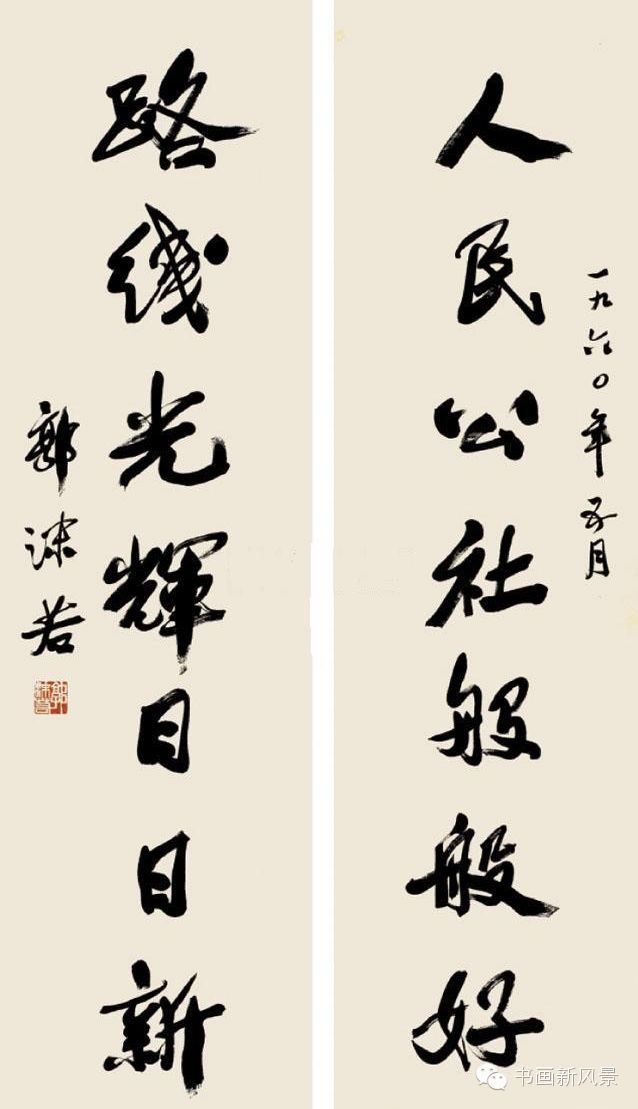 一九六〇年五月
人民公社般般好
路线光辉日日新
郭沫若
郭沫若
书画新风景